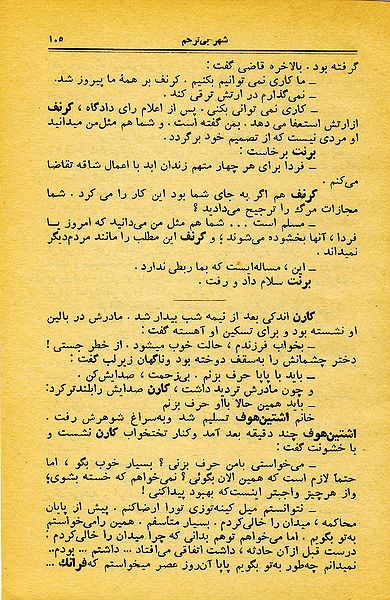 شهر بی‌ترحم ۱۰۵
گرفته بود . بالاخره قاضی گفت :
ــ ما کاری نمی توانیم بکنیم . کرنف بر همهٔ ما پیروز شد.
ــ نمی‌گذارم در ارتش ترقی کند .
ــ کاری نمی توانی بکنی . پس از اعلام رای دادگاه ، کرنف
ازارتش استعفا می دهد . بمن گفته است . و شما هم مثل‌من میدانید
او مردی نیست که از تصمیم خود برگردد.
برنت برخاست :
ــ فردا برای هر چهار متهم زندان ابد با اعمال شاقه تقاضا
می‌کنم .
کرنف هم اگر به جای شما بود این کار را می کرد . شما
مجازات مرگ را ترجیح می‌دادید ؟
ــ مسلم است ... شما هم مثل من می‌دانید که امروز یـا
فردا ، آنها بخشوده می‌شوند ؛ و کرنف این مطلب را مانند مردم‌دیگر
نمیداند .
ــ این ، مساله‌ایست که بما ربطی ندارد .
برنت سلام داد و رفت .
کارن اندکی بعد از نیمه شب بیدار شد . مادرش در بالین
او نشسته بود و برای تسکین او آهسته گفت :
ــ بخواب فرزندم ، حالت خوب میشود . از خطر جستی !
دختر چشمانش را به‌سقف دوخته بود وناگهان زیرلب گفت :
ــ باید با پاپا حرف بزنم . بی‌زحمت ، صدایش‌کن .
و چون مادرش تردید داشت ، کارن صدایش رابلندترکرد:
ــ باید همین حالا بااو حرف بزنم
خانم اشتین‌هوف تسلیم شد وبه‌سراغ شوهرش رفت .
اشتین‌هوف چند دقیقه بعد آمد وکنار تختخواب کارن نشست و
با خشونت گفت :
ــ می‌خواستی بامن حرف بزنی ؟ بسیار خوب بگو ، اما
حتماً لازم است که همین الان بگوئی ؟ نمی‌خواهم که خسته بشوی؛
واز هرچیز واجبتر اینست‌که بهبود پیداکنی !
ــ نتوانستم میل کینه‌توزی تورا ارضاکنم . پیش از پایان
محاکمه ، میدان را خالی‌کردم . بسیار متاسفم . همین رامی‌خواستم
به‌تو بگویم . اما می‌خواهم توهم بدانی که چرا میدان را خالی‌کردم :
درست قبل ازآن حادثه ، داشت اتفاقی می‌افتاد ... داشتم ... بودم..
نمیدانم چه‌طور به‌تو بگویم پاپا آن‌روز عصر میخواستم که‌فرانک ...